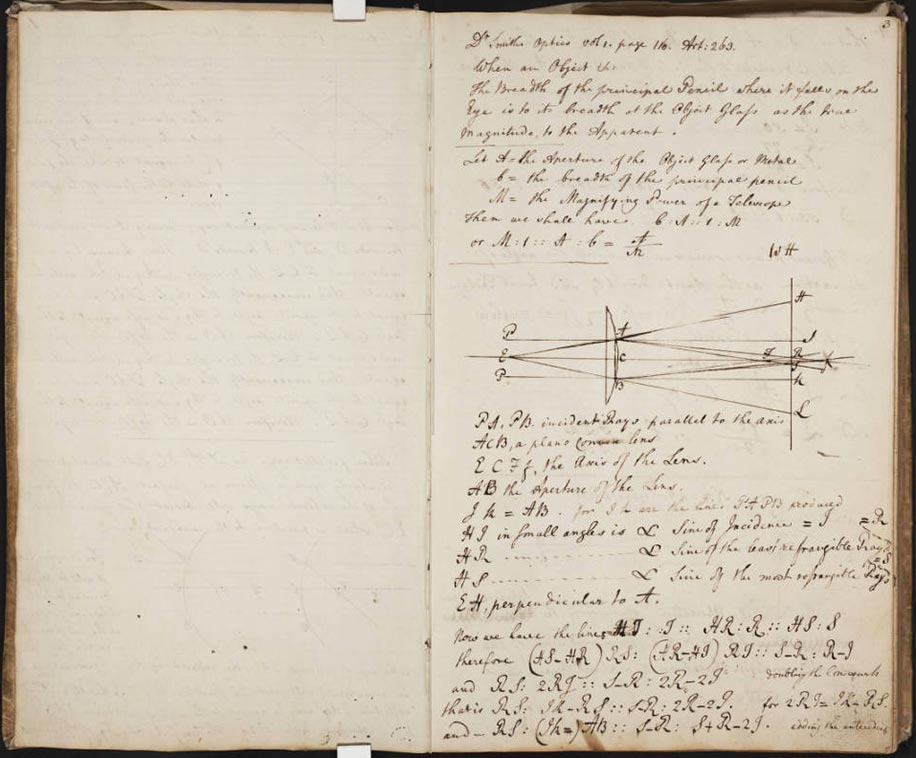 3
Dr Smiths Optics vol 1. page 116. Art: 263.
When an Object &c.
The Breadth of the principal Pencil where it falls on the
Eye is to its breadth at the Object Glass as the true
Magnitude, to the Apparent.
Let A = the Aperture of the Object Glass or Metal
b = the breadth of the principal pencil
M = the Magnifying Power of a Telescope
Then we shall have b : A :: 1 : M
or M : 1 :: A : b = A/m
H
P A J
E C F R
P B K
L
PA, PB. incident Rays parallel to the axis
ACB, a plano Convex lens
E C F f, the Axis of the Lens.
AB the Aperture of the Lens.
J K = AB. for J K are the lines PA PB produced
HJ in small angles is ∝ Sine of Incidence = J
HR - - - - - ∝ Sine of the least refrangible Rays = R
HS - - - - - ∝ Sine of the most refrangible Rays = S
EH, perpendicular to A.
Now we have the lines HJ : J :: HR : R :: HS : S
therefore (HS-HR) RS : (HR-HJ) RJ :: S-R : R-J
and RS : 2RJ :: S-R : 2R-2J doubling the Consequents
that is RS : JK-RS :: S-R : 2R-2J. for 2RJ = JK-RS.
and - RS : (JK=) AB :: S-R : S+R-2J. adding the anteced